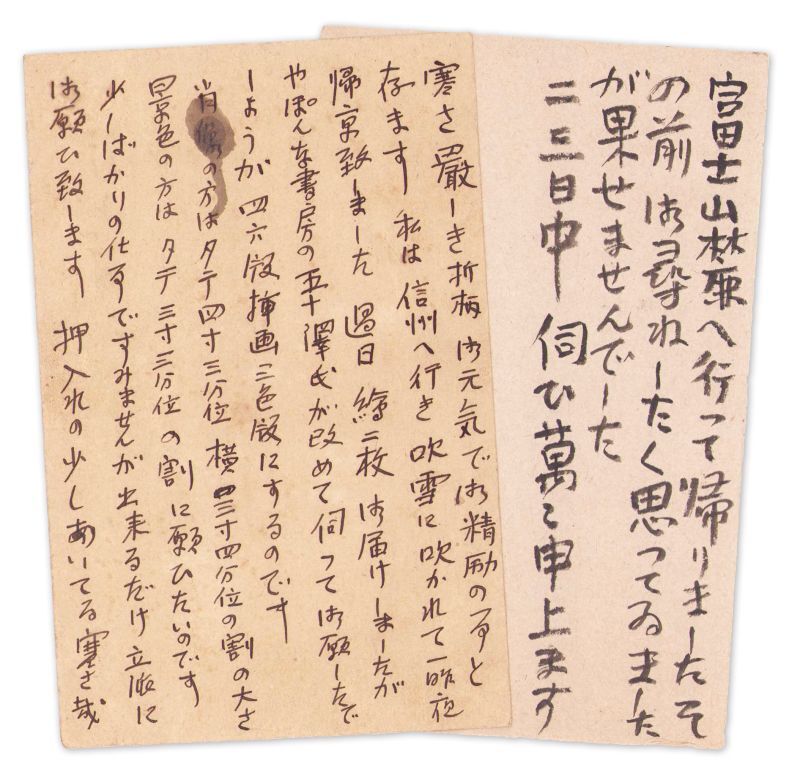 富士山麓へ行って帰りましたそ
の前御尋ねしたく思ってゐました
が果せませんでした
二三日中 伺ひ萬〻申上ます
寒さ嚴しき折柄 御元気で御精励の事と
存ます 私は信州へ行き吹雪に吹かれて一昨夜
帰京致しました 過日繪二枚御届けしましたが
やぽんな書房の五十澤氏が改めて伺って御願したで
しょうが 四六版挿画三色版にするのです
肖像の方はタテ四寸三分位 横三寸四分位の割の大さ
景色の方はタテ三寸三分位の割に願ひたいのです
少しばかりの仕事ですみませんが出来るだけ立派に
御願ひ致します 押入れの少しあいてる寒さ哉